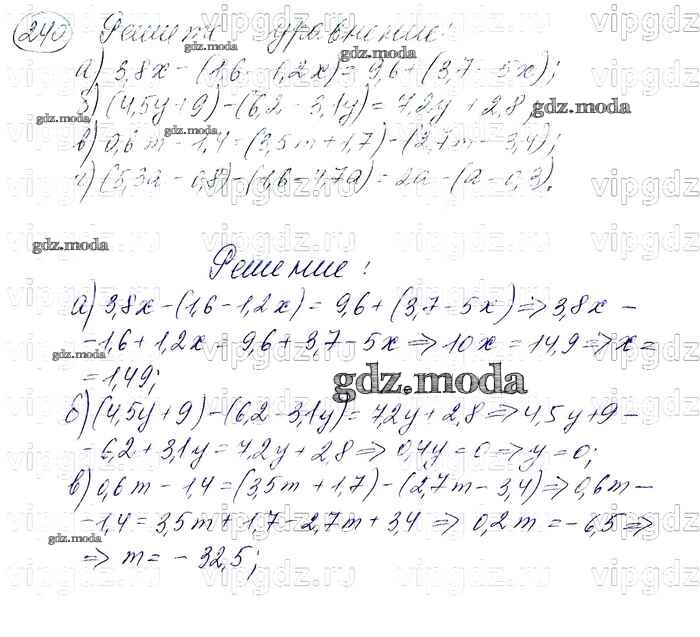 240 Решить уравнение:
а) 3,8x - (1,6 - 1,2x) = 9,6 + (3,7 - 5x);
б) (4,5y + 9) - (6,2 - 3,1y) = 7,2y + 2,8;
в) 0,6m - 1,4 = (3,5m + 1,7) - (2,7m - 3,4);
г) (5,3a - 0,8) - (1,6 - 4,7a) = 2a - (a - 0,3).
Решение:
а) 3,8x - (1,6 - 1,2x) = 9,6 + (3,7 - 5x) => 3,8x -
- 1,6 + 1,2x = 9,6 + 3,7 - 5x => 10x = 14,9 => x =
= 1,49;
б) (4,5y + 9) - (6,2 - 3,1y) = 7,2y + 2,8 => 4,5y + 9 -
- 6,2 + 3,1y = 7,2y + 2,8 => 0,4y = 0 => y = 0;
в) 0,6m - 1,4 = (3,5m + 1,7) - (2,7m - 3,4) => 0,6m -
- 1,4 = 3,5m + 1,7 - 2,7m + 3,4 => 0,2m = - 6,5 =>
=> m = - 32,5;
gdz.moda
vipgdz.ru